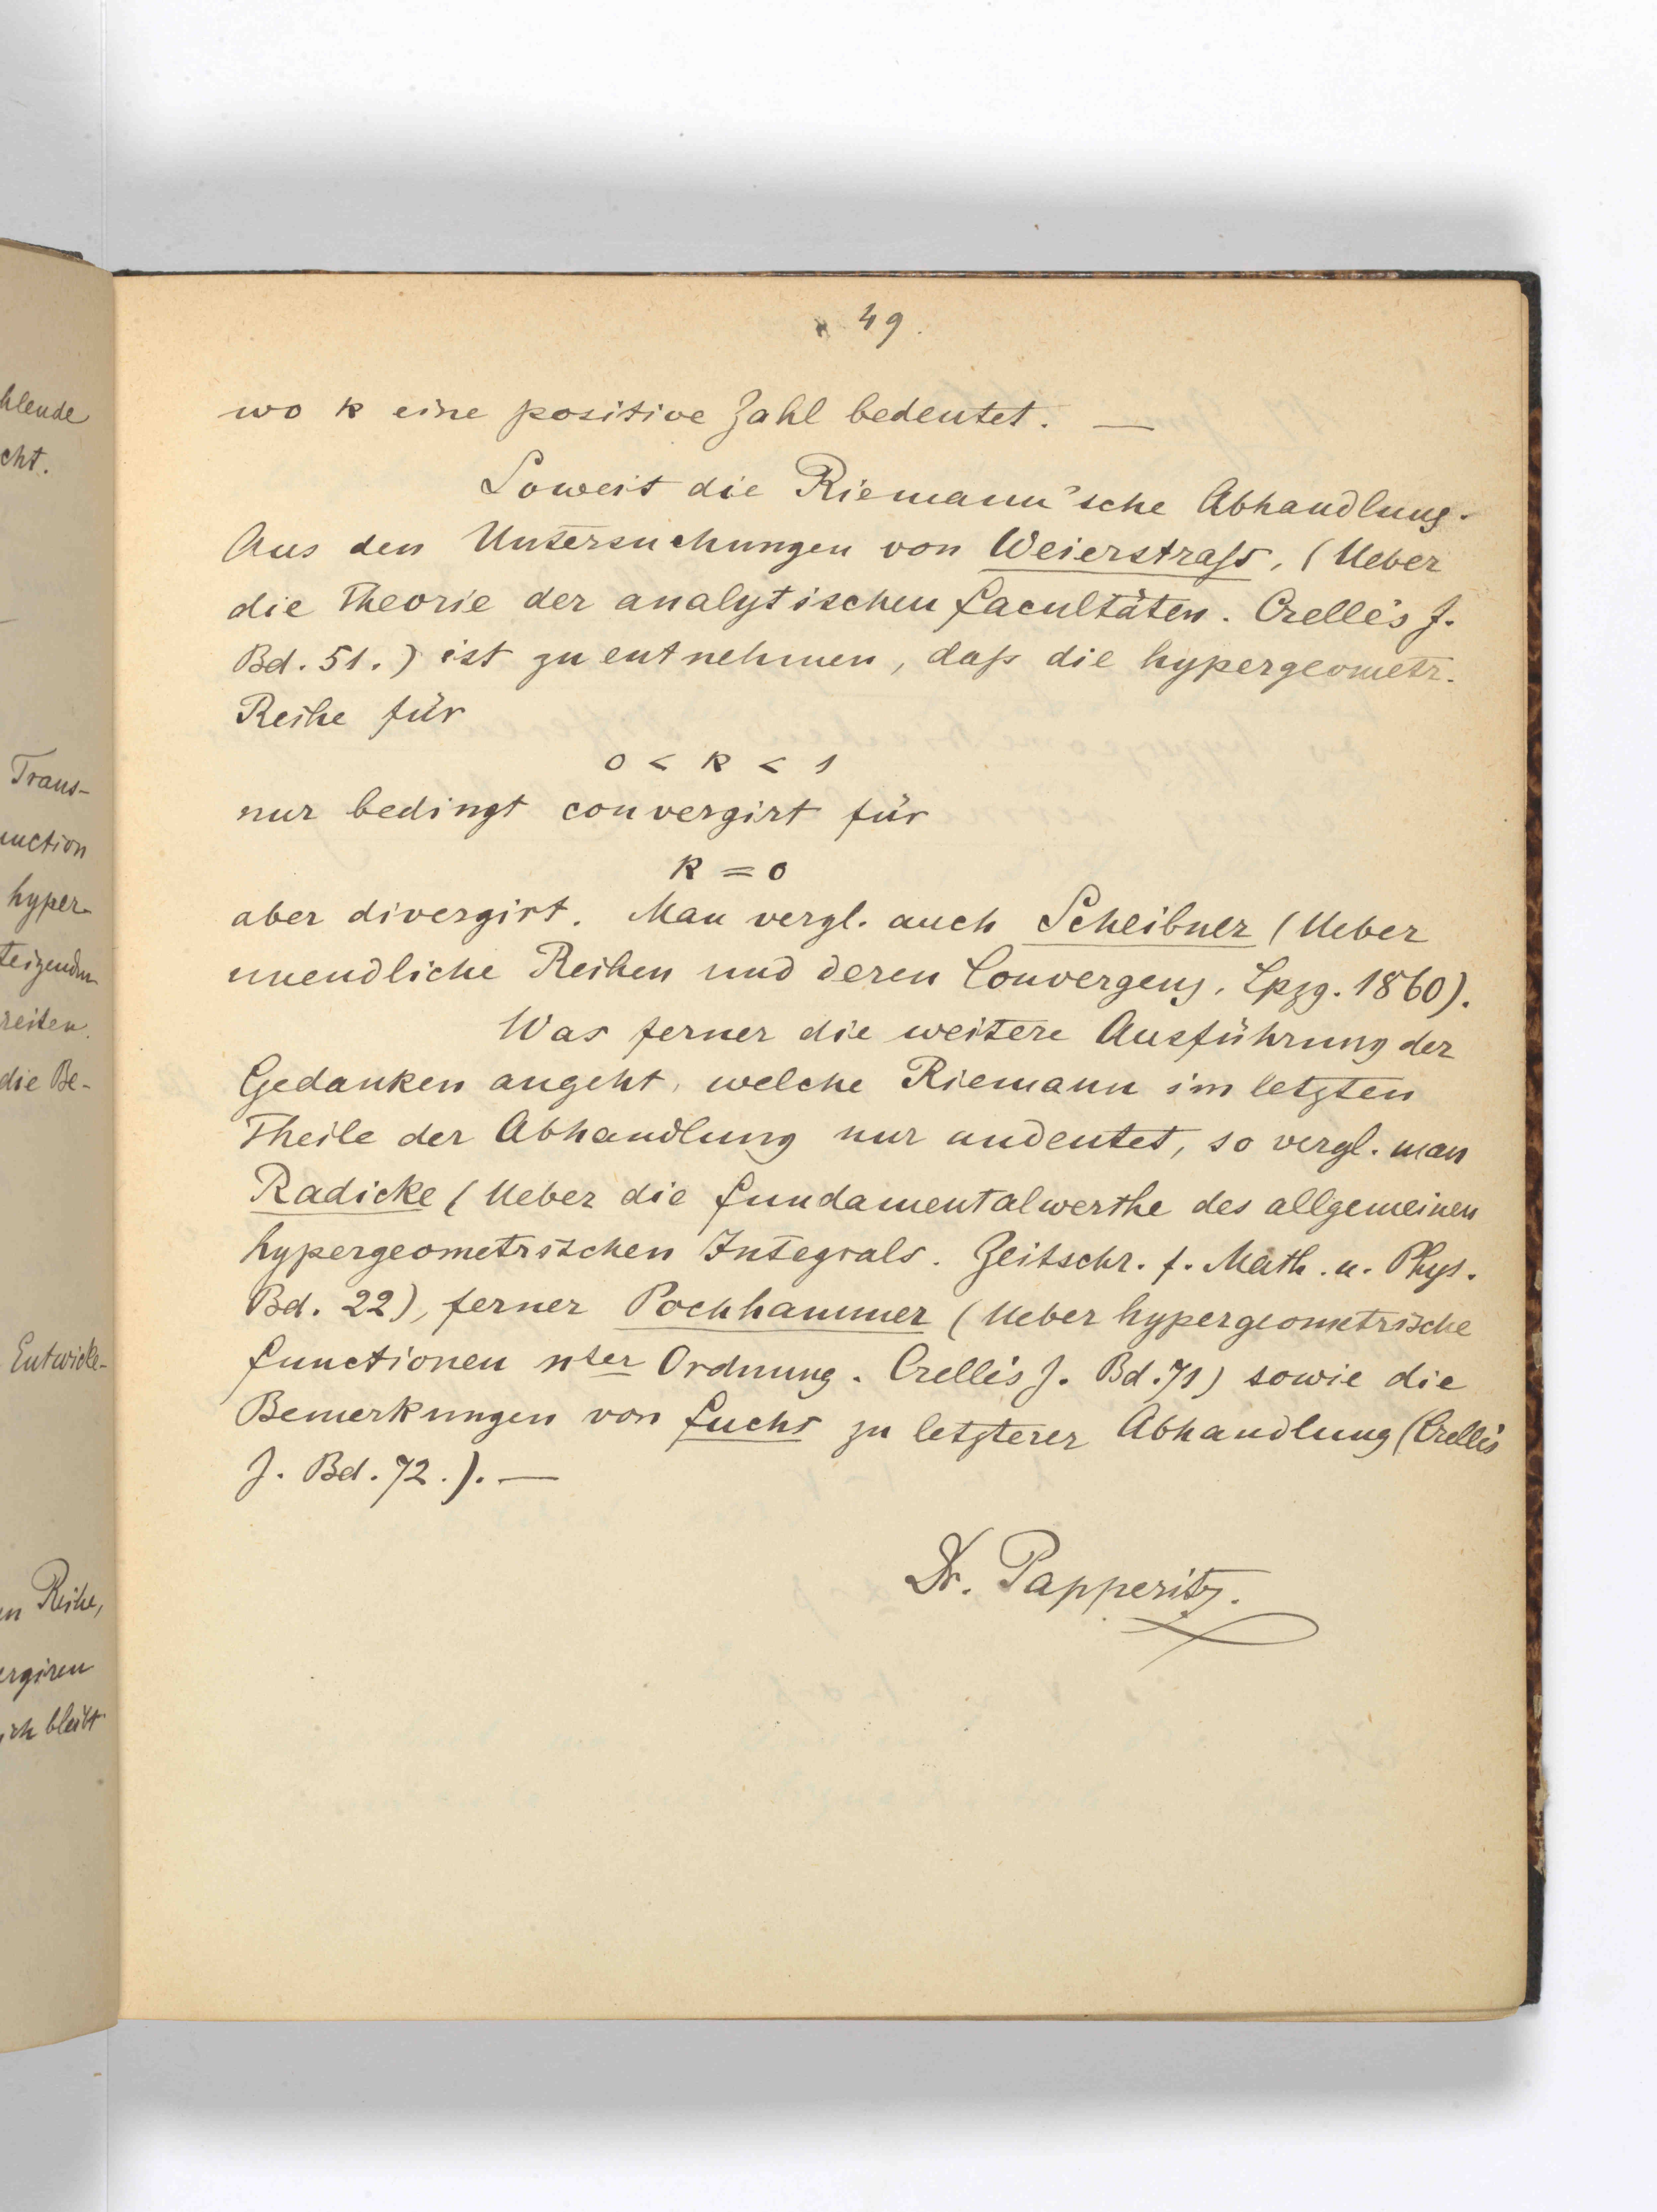 hlende
cht.
Trans-
unction
hyper-
teigenden
reiten.
die Be-
Entwicke-
en Reihe,
ergiren
ich bleibt
49.
wo k eine positive Zahl bedeutet. —
Soweit die Riemann'sche Abhandlung.
Aus den Untersuchungen von Weierstraſs, (Ueber
die Theorie der analytischen Facultäten. Crelle's J.
Bd. 51.) ist zu entnehmen, daſs die hypergeometr.
Reihe für
0 < k < 1
nur bedingt convergirt für
k = 0
aber divergirt. Man vergl. auch Scheibner (Ueber
unendliche Reihen und deren Convergenz, Lpzg. 1860).
Was ferner die weitere Ausführung der
Gedanken angeht, welche Riemann im letzten
Theile der Abhandlung nur andeutet, so vergl. man
Radicke (Ueber die Fundamentalwerthe des allgemeinen
hypergeometrischen Integrals. Zeitschr. f. Math. u. Phys.
Bd. 22), ferner Pochhammer (Ueber hypergeometrische
Functionen nter Ordnung. Crelle's J. Bd. 71) sowie die
Bemerkungen von Fuchs zu letzterer Abhandlung (Crelle's
J. Bd. 72.). —
Dr. Papperitz.